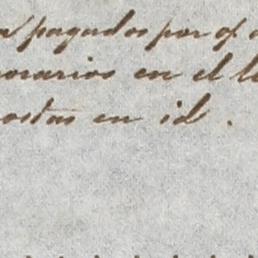 pagados por
orarios en el
ostas en id.